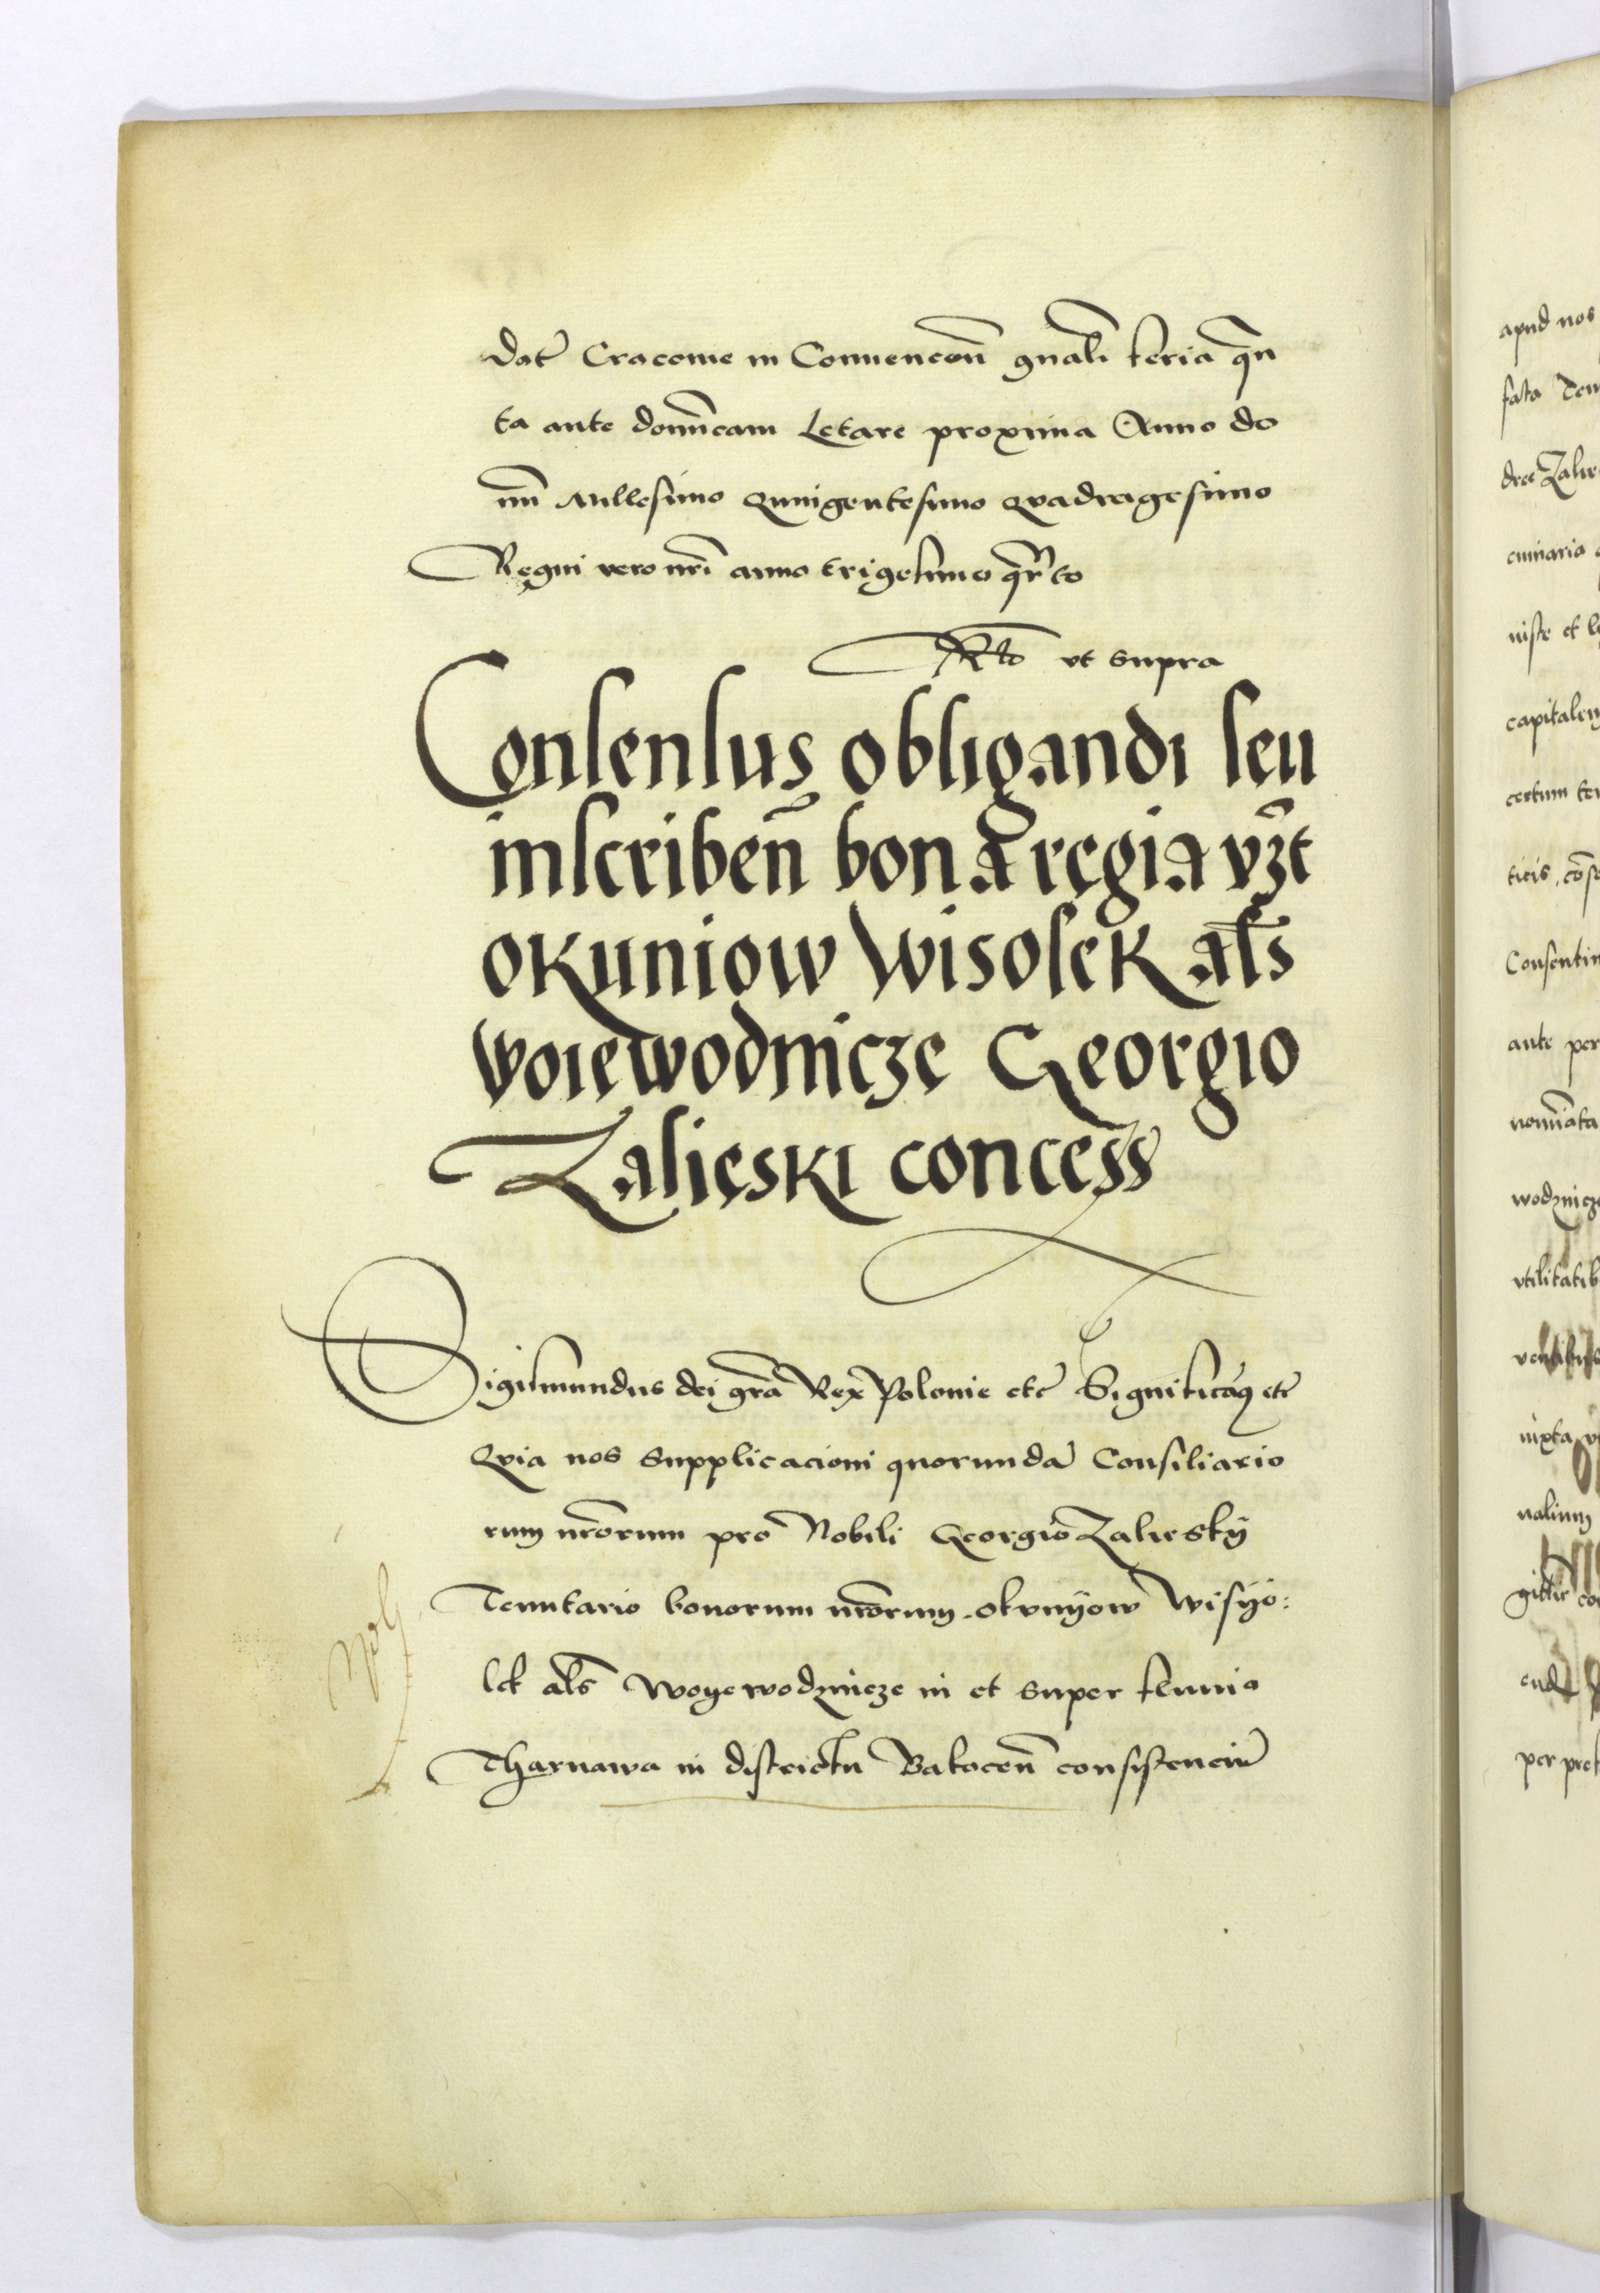 Dat Cracouie in Conuencon gnali feria qn
ta ante dominicam Letare proxima Anno do
mini Millesimo Quingentesimo Quadragesimo
Regni vero nri anno trigesimo qrto
Rlo vt supra
Consensus obligandi seu
inscriben bona regia vzt
okuniow wisosek als
woiewodnicze Georgio
Zalieski concess
Sigismundus dei gra Rex Polonie etc Significamq etc
Qvia nos supplicacioni quorunda Consiliario
rum nrorum pro Nobili Georgio Zaliesky
Tenutario bonorum nrorum okvnyow Wisyo:
sek als Woyewodznicze in et super fluuio
Tharnawa in districtu Bakocen consistenciu
apud nos
fata Ten
dree Zalie
cuniaria
niste et
capitalem
certum ter
ticis conse
Consentin
ante per
nominata
wodznicze
vtilitatib
iuxta
nalium
per pref